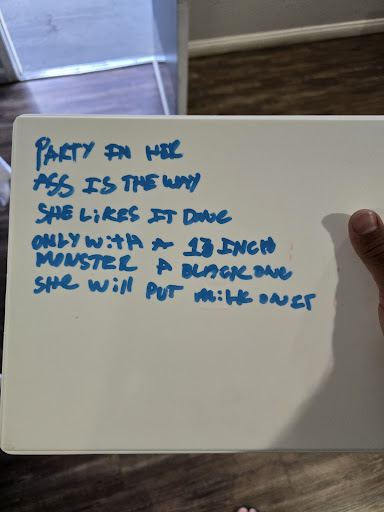 PARTY IN HER
ASS IS THE WAY
SHE LIKES IT DONE
ONLY WITH A 13 INCH
MONSTER A BLACK ONE
SHE WILL PUT MILK ON IT